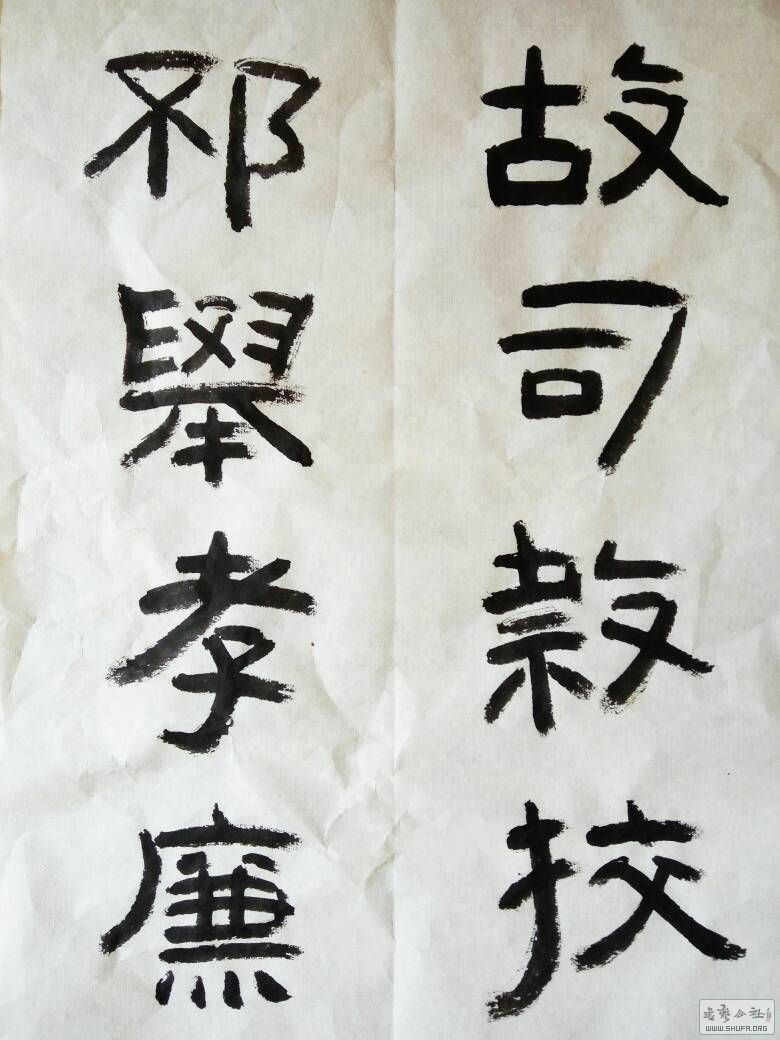 故司隸挍
邳舉孝廉
书艺公社
WWW.SHUFA.ORG